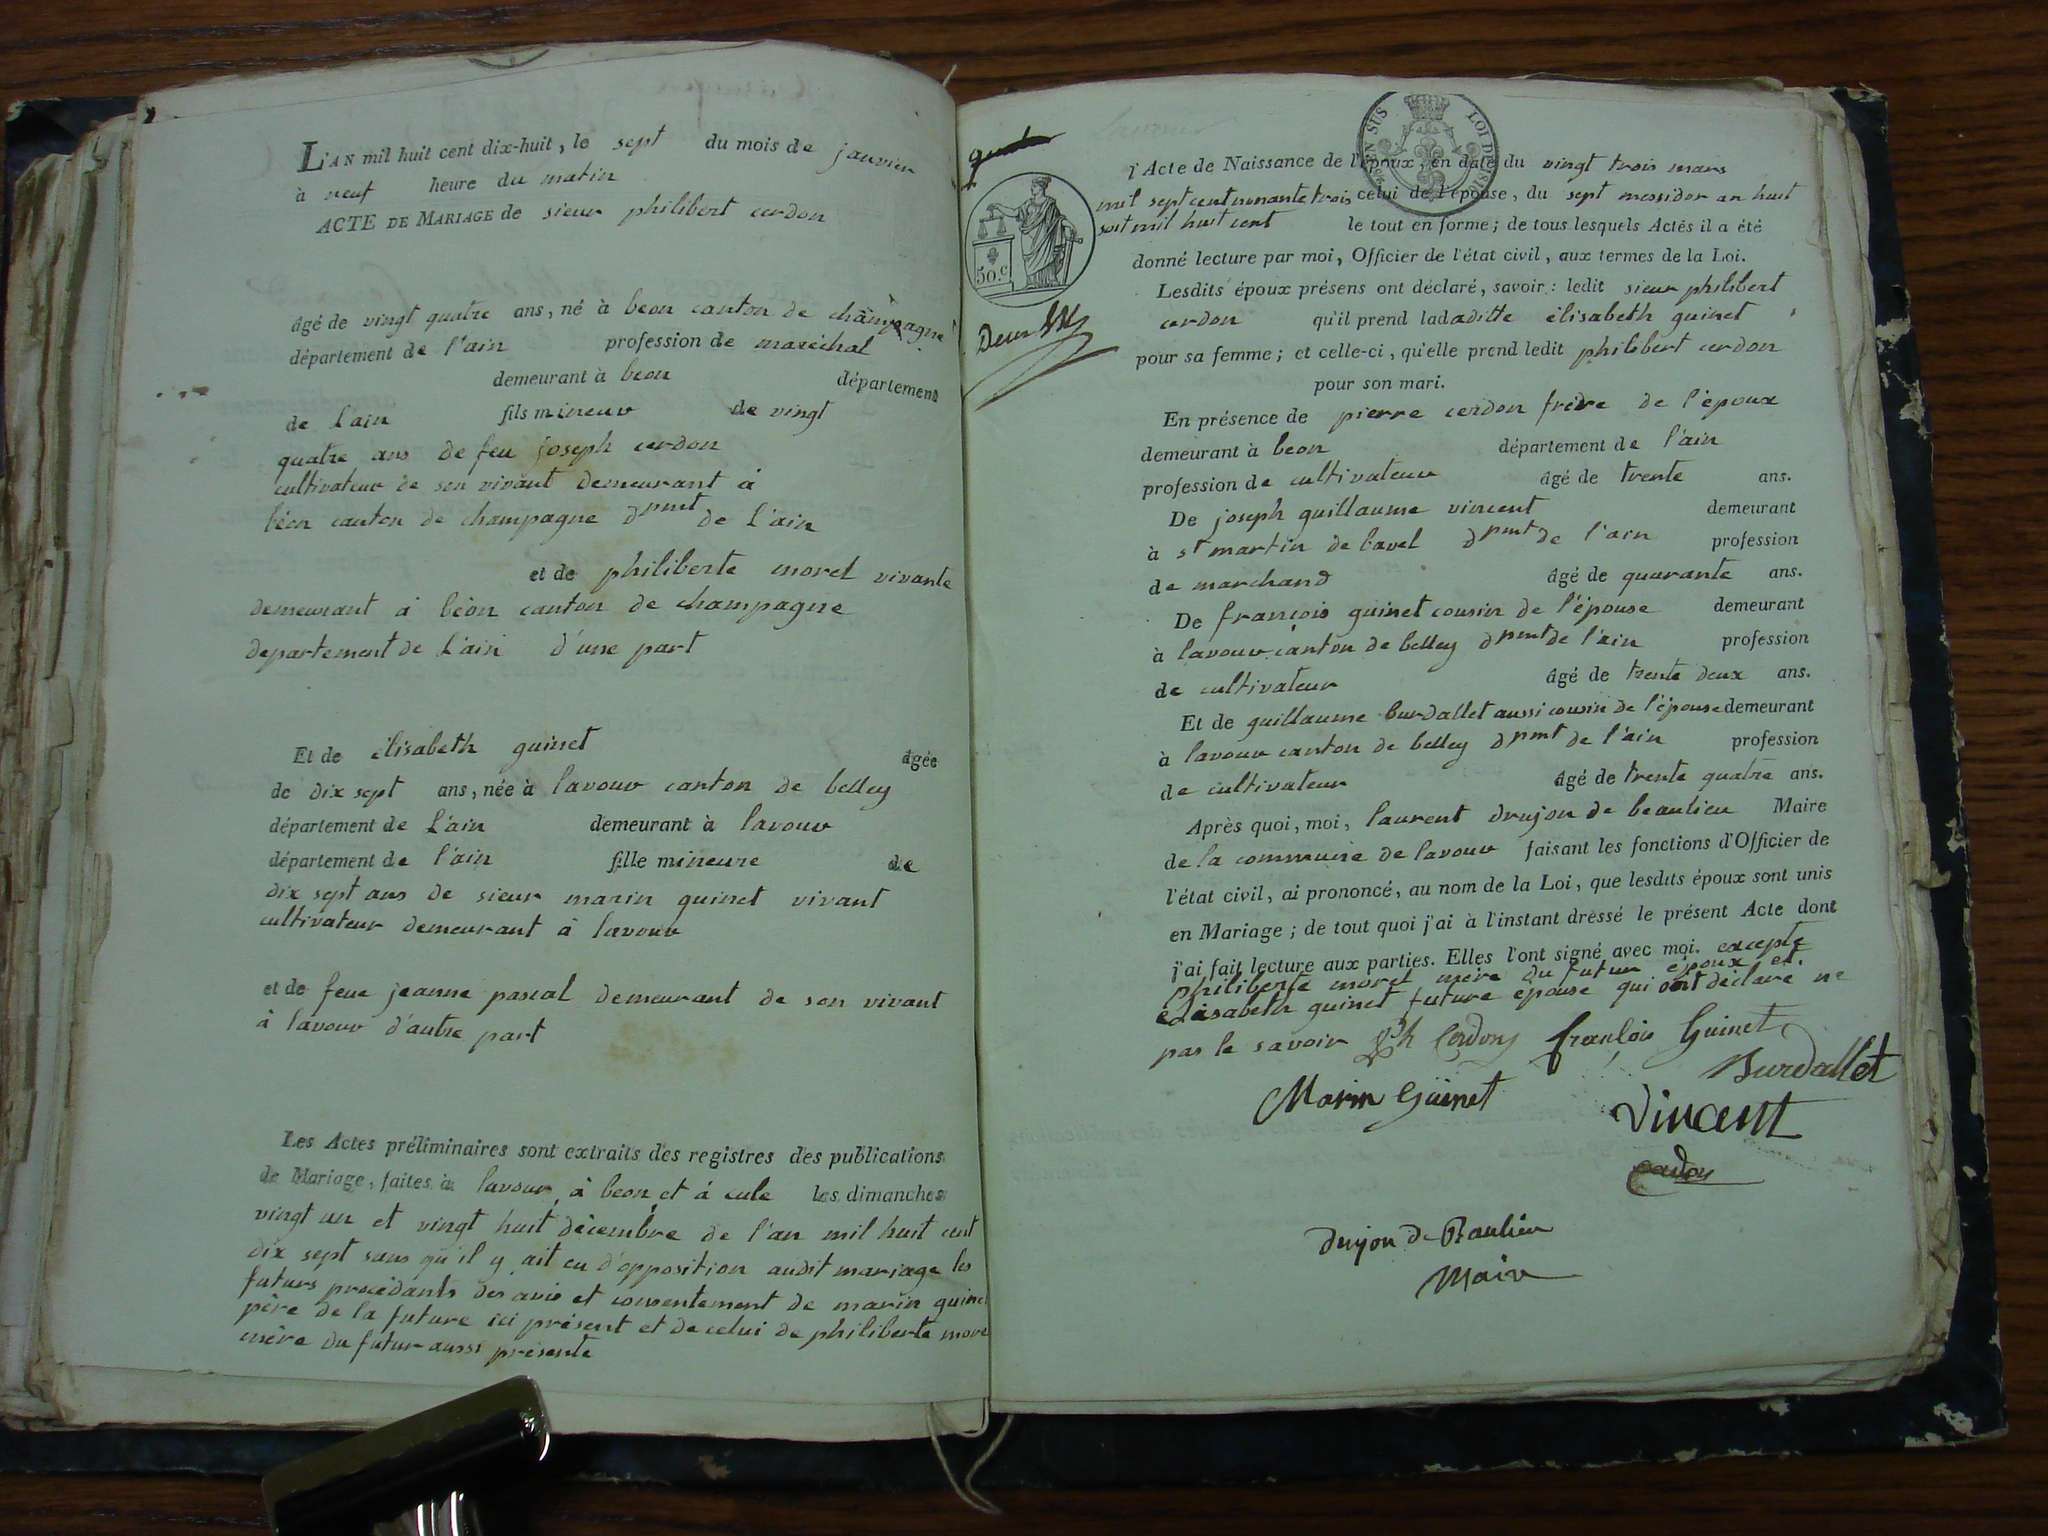 L'AN mil huit cent dix-huit, le sept du mois de janvier
à neuf heure du matin
ACTE DE MARIAGE de sieur philibert cerdon
âgé de vingt quatre ans, né à beon canton de champagne
département de l'ain profession de maréchal
demeurant à beon département
de l'ain fils mineur de vingt
quatre ans de feu joseph cerdon
cultivateur de son vivant demeurant à
béon canton de champagne dpmt de l'ain
et de philiberte morel vivante
demeurant à béon canton de champagne
departement de l'ain d'une part
Et de élisabeth guinet agée
de dix sept ans, née à lavour canton de belley
département de l'ain demeurant à lavour
département de l'ain fille mineure de
dix sept ans de sieur marin guinet vivant
cultivateur demeurant à lavour
et de feue jeanne pascal demeurant de son vivant
à lavour d'autre part
Les Actes préliminaires sont extraits des registres des publications
de Mariage, faites à lavour, à beon, et à cule les dimanches
vingt un et vingt huit décembre de l'an mil huit cent
dix sept sans qu'il y ait eu d'opposition audit mariage les
futurs procédants des avis et consentement de marin guinet
père de la future ici présent et de celui de philiberte morel
mère du futur aussi présente
TIMBRE
50.c
Deux
l'Acte de Naissance de l'époux, en date du vingt trois mars
mil sept cent nonante trois celui de l'épouse, du sept messidor an huit
soit mil huit cent le tout en forme; de tous lesquels Actes il a été
donné lecture par moi, Officier de l'état civil, aux termes de la Loi.
Lesdits époux présens ont déclaré, savoir: ledit sieur philibert
cerdon qu'il prend ladaditte élisabeth guinet
pour sa femme; et celle-ci, qu'elle prend ledit philibert cerdon
pour son mari.
En présence de pierre cerdon frère de l'époux
demeurant à beon département de l'ain
profession de cultivateur âgé de trente ans.
De joseph guillaume vincent demeurant
à st martin de bavel dpmt de l'ain profession
de marchand âgé de quarante ans.
De françois guinet cousin de l'épouse demeurant
à lavour canton de belley dpmt de l'ain profession
de cultivateur âgé de trente deux ans.
Et de guillaume burdallet aussi cousin de l'épouse demeurant
à lavour canton de belley dpmt de l'ain profession
de cultivateur âgé de trente quatre ans.
Après quoi, moi, laurent drujon de beaulieu Maire
de la commune de lavour faisant les fonctions d'Officier de
l'état civil, ai prononcé, au nom de la Loi, que lesdits époux sont unis
en Mariage; de tout quoi j'ai à l'instant dressé le présent Acte dont
j'ai fait lecture aux parties. Elles l'ont signé avec moi. excepte
philiberte morel mère du futur époux et
élisabeth guinet future épouse qui ont déclaré ne
pas le savoir ph Cerdon françois Guinet
Burdallet
Marin Guinet
Vincent
Cerdon
drujon de Beaulieu
Maire